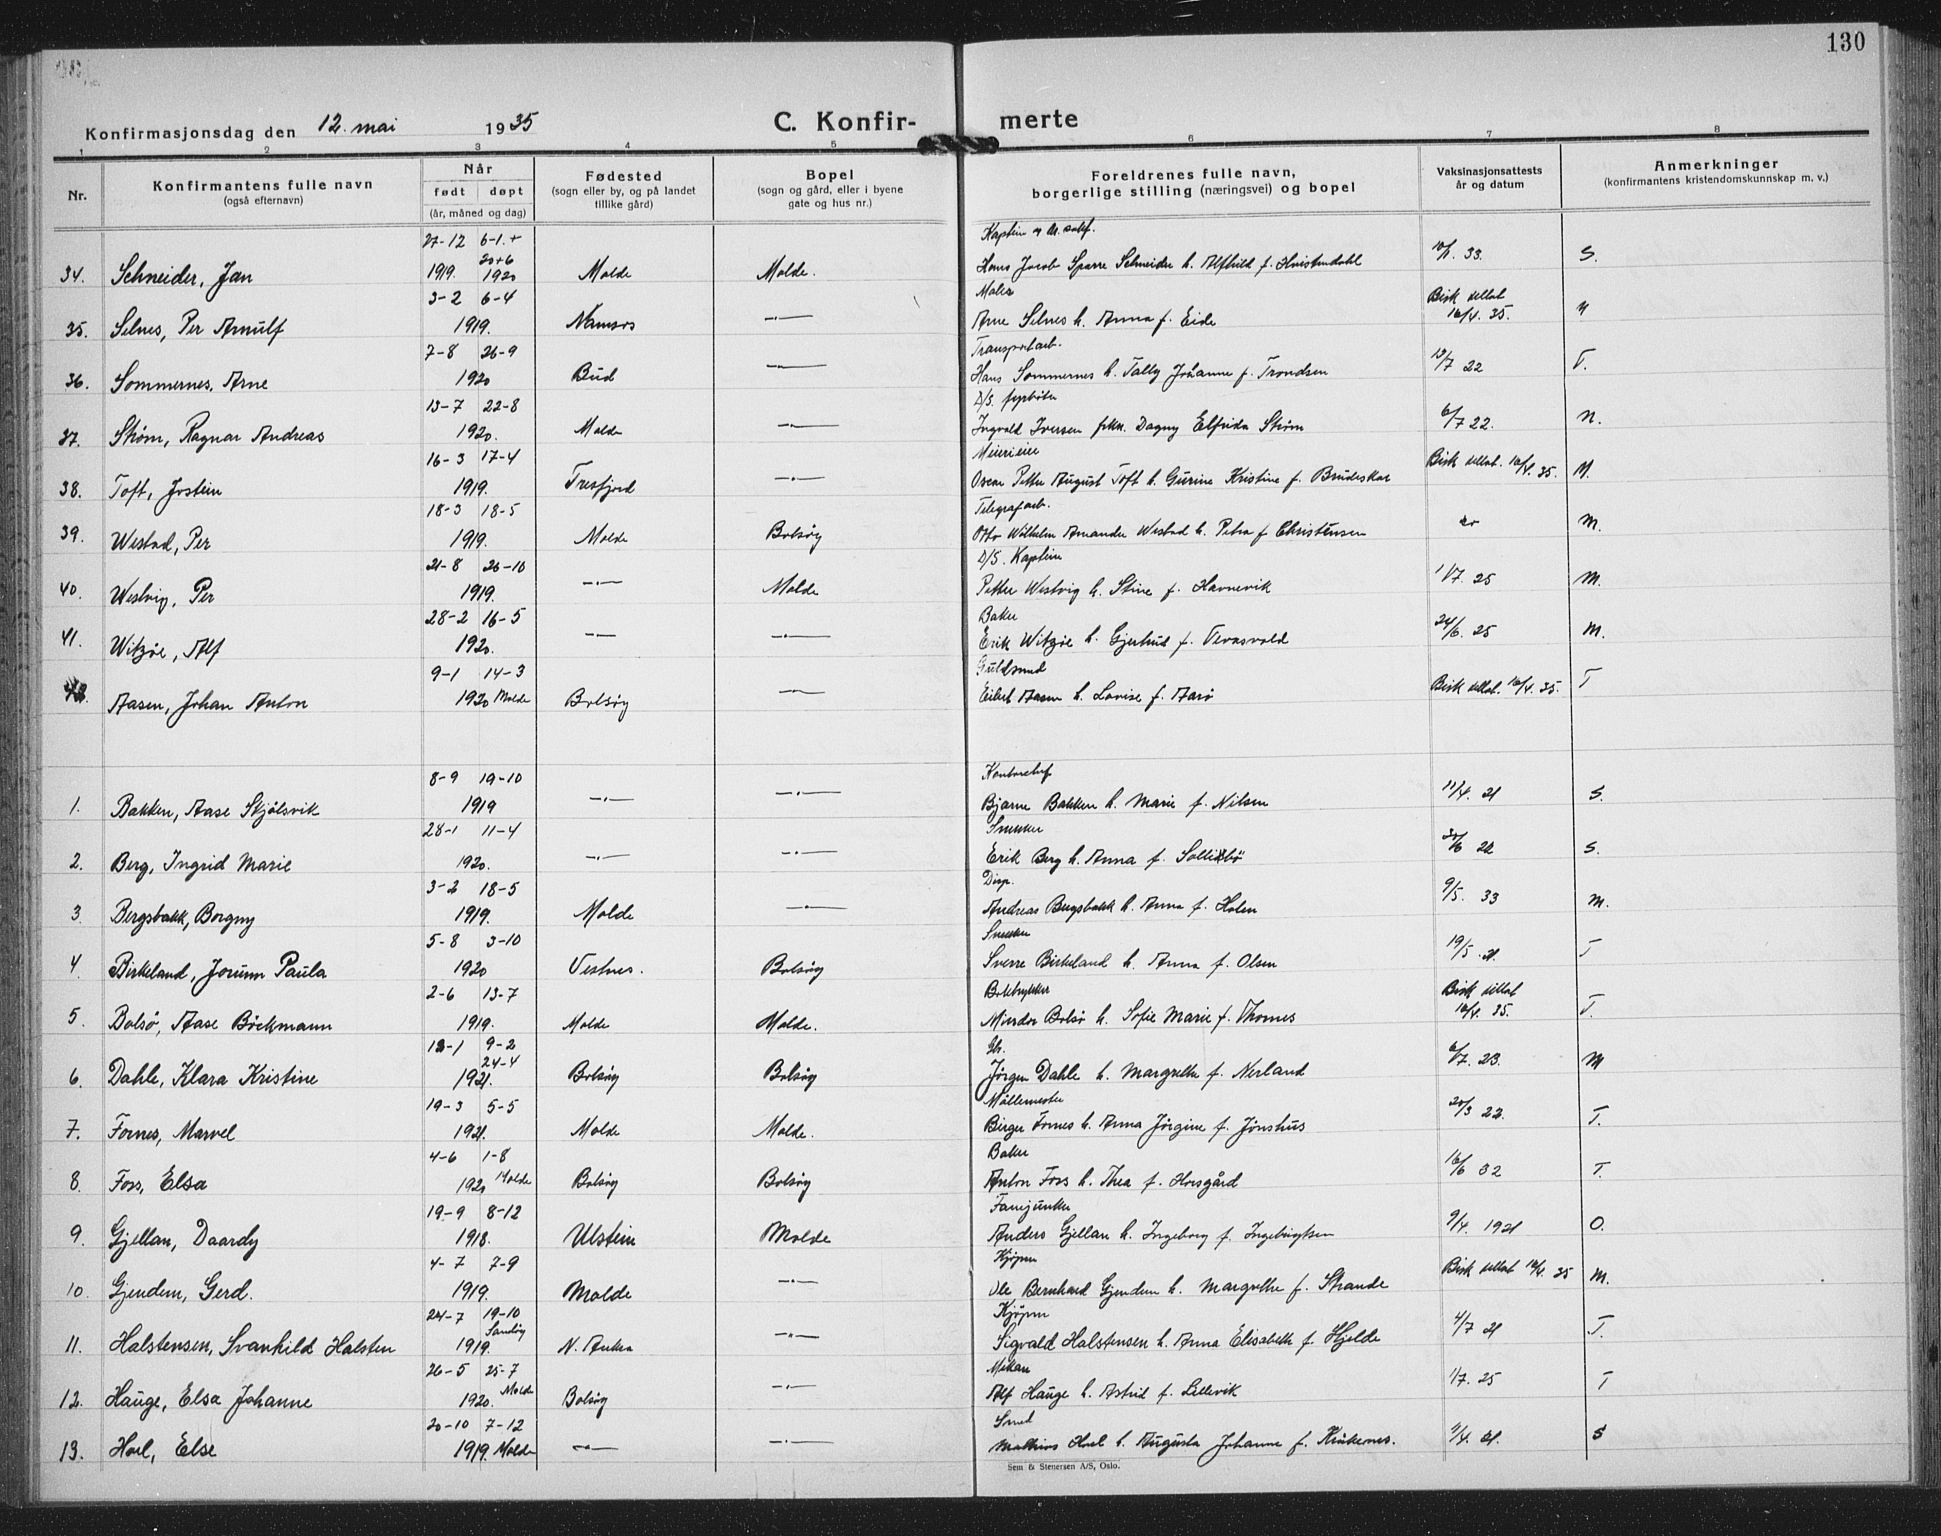 130
Konfirmasjonsdag den 12. mai 1935
C. Konfir- merte
1 2 3 4 5 6 7 8
Nr.
Konfirmantens fulle navn
(også efternavn)
Når
født døpt
(år, måned og dag)
Fødested
(sogn eller by, og på landet
tillike gård)
Bopel
(sogn og gård, eller i byene
gate og hus nr.)
Foreldrenes fulle navn,
borgerlige stilling (næringsvei) og bopel
Vaksinasjonsattests
år og datum
Anmerkninger
(konfirmantens kristendomskunnskap m. v.)
27-12 6-1.+ Kaptein
20+6
34. Schneider, Jan 1919. 1920 Molde Molde. Hans Jacob Sparre Schneider h. Alfhild f. Huistendahl 33. S.
3-2 6-4 Maler Bisk dettat
35. Selnes, Per Arnulf 1919. Namsos —·— Arne Selnes h. Anna f. Eide 16/4. 35.
7-8 26-9 Transportarb.
36. Sommernes, Arne 1920 Bud —·— Hans Sommernes h. Tally Johanne f. Trondsen 13/7 22 T.
13-7 22-8 D/S. fyrbøter
37. Strøm, Ragnar Andreas 1920. Molde —·— Ingvald Iversen frkn. Dagny Elfrida Strøm 6/7 22. N.
16-3 17-4 Meierieier
38. Toft, Jostein 1919. Tresfjord —·— Oscar Petter August Toft h. Gurine Kristine f. Brudeskar Bisk dettat. 16/4. 35. M.
18-3 18-5 Telegrafarb.
39. Westad, Per 1919. Molde Bolsøy Otto Wilhelm Amander Westad h. Petra f Christensen do M.
21-8 26-10 D/S. Kaptein
40. Westvig, Per 1919. —·— Molde Petter Westvig h. Stine f. Havnevik 1/7 25 M.
28-2 16-5 Baker
41. Witzøe, Alf 1920. —·— —·— Erik Witzøe h. Gjertrud f. Vevasvold 24/6. 25 M.
9-1 14-3 Guldsmed
42. Aasen, Johan Anton 1920 Molde Bolsøy —·— Eilert Aasen h. Lovise f. Aarø Bisk dettat. 16/4. 35. T
8-9 19-10 Kontorchef
1. Bakken, Aase Skjølsvik 1919 —·— —·— Bjarne Bakken h. Marie f. Nilsen 11/4. 21 S.
28-1 11-4 Snekker
2. Berg, Ingrid Marie 1920. —·— —·— Erik Berg h. Anna f. 22 S.
3-2 18-5 Disp.
3. Bergsbakk, Borgny 1919. Molde —·— Andreas Bergsbakk h. Anna f. Holen 9/5. 33 M.
5-8 3-10 Snekker
4. Birkeland, Jorunn Paula 1920 Vestnes. Bolsøy Sverre Birkeland h. Anna f. Olsen 19/5. 21. T
2-6 13-7 Boktrykker Bisk dettat
5. Bolsø, Aase Böckmann 1919. Molde Molde. Mindor Bolsø h. Sofie Marie f. Thomes 16/4. 35. T.
12-1 9-2 Gbr.
24-4
6. Dahle, Klara Kristine 1921. Bolsøy Bolsøy Jørgen Dahle h. Margrethe f. Nerland 6/7. 23. M
19-3 5-5 Møllemester
7. Fornes, Marvel 1921. Molde Molde. Birger Fornes h. Anna Jørgine f. Jønshus 20/3 22. T.
4-6 1-8 Baker
8. Foss, Elsa 1920 Molde Bolsøy Bolsøy Anton Foss h. Thea f. Horsgård 16/6 32 T.
19-9 8-12 Fanejunker
9. Gjellan, Daardy 1918. Ulstein Molde Anders Gjellan h. Ingeborg f. Ingebrigtsen 9/4. 1921 O.
4-7 7-9 Kjøpm
10. Gjendem, Gerd. 1919. Molde —·— Ole Bernhard Gjendem h. Margrethe f. Strande Bisk dettat 16/4. 35 M.
24-7 19-10 Kjøpm
Sandøy
11. Halstensen, Svanhild Halsten 1919. N. Aukra —·— Sigvald Halstensen h. Anna Elisabeth f. Hjelde 4/7 21 T.
26-5 25-7 Mekan
12. Hauge, Elsa Johanne 1920. Molde Bolsøy —·— Alf Hauge h. Astrid f. Lillevik 1/7. 25 T
20-10 7-12 Smed
13. Hoel, Else 1919. Molde —·— —·— Mathias Hoel h. Augusta Johanne f. Kråkenes. 9/4. 21. S
Sem & Stenersen A/S, Oslo.